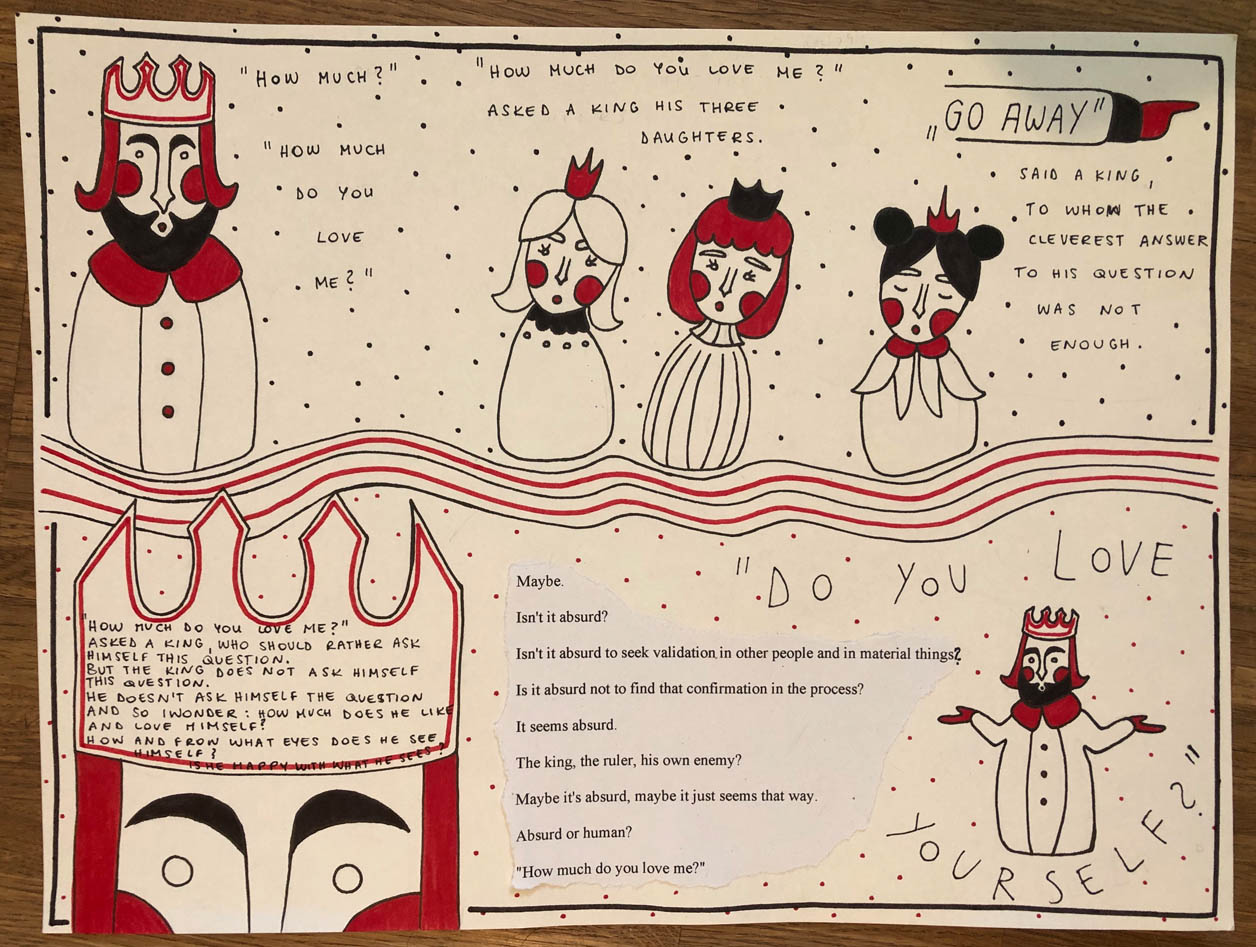 "HOW MUCH?"
"HOW MUCH
DO YOU
LOVE
ME?"
"HOW MUCH DO YOU LOVE ME?"
ASKED A KING HIS THREE
DAUGHTERS.
„GO AWAY"
SAID A KING,
TO WHOM THE
CLEVEREST ANSWER
TO HIS QUESTION
WAS NOT
ENOUGH.
"HOW MUCH DO YOU LOVE ME?"
ASKED A KING, WHO SHOULD RATHER ASK
HIMSELF THIS QUESTION.
BUT THE KING DOES NOT ASK HIMSELF
THIS QUESTION.
HE DOESN'T ASK HIMSELF THE QUESTION
AND SO I WONDER: HOW MUCH DOES HE LIKE
AND LOVE HIMSELF?
HOW AND FROM WHAT EYES DOES HE SEE
HIMSELF?
IS HE HAPPY WITH WHAT HE SEES?
Maybe.
Isn't it absurd?
Isn't it absurd to seek validation in other people and in material things?
Is it absurd not to find that confirmation in the process?
It seems absurd.
The king, the ruler, his own enemy?
Maybe it's absurd, maybe it just seems that way.
Absurd or human?
"How much do you love me?"
"DO YOU LOVE
YOURSELF?"